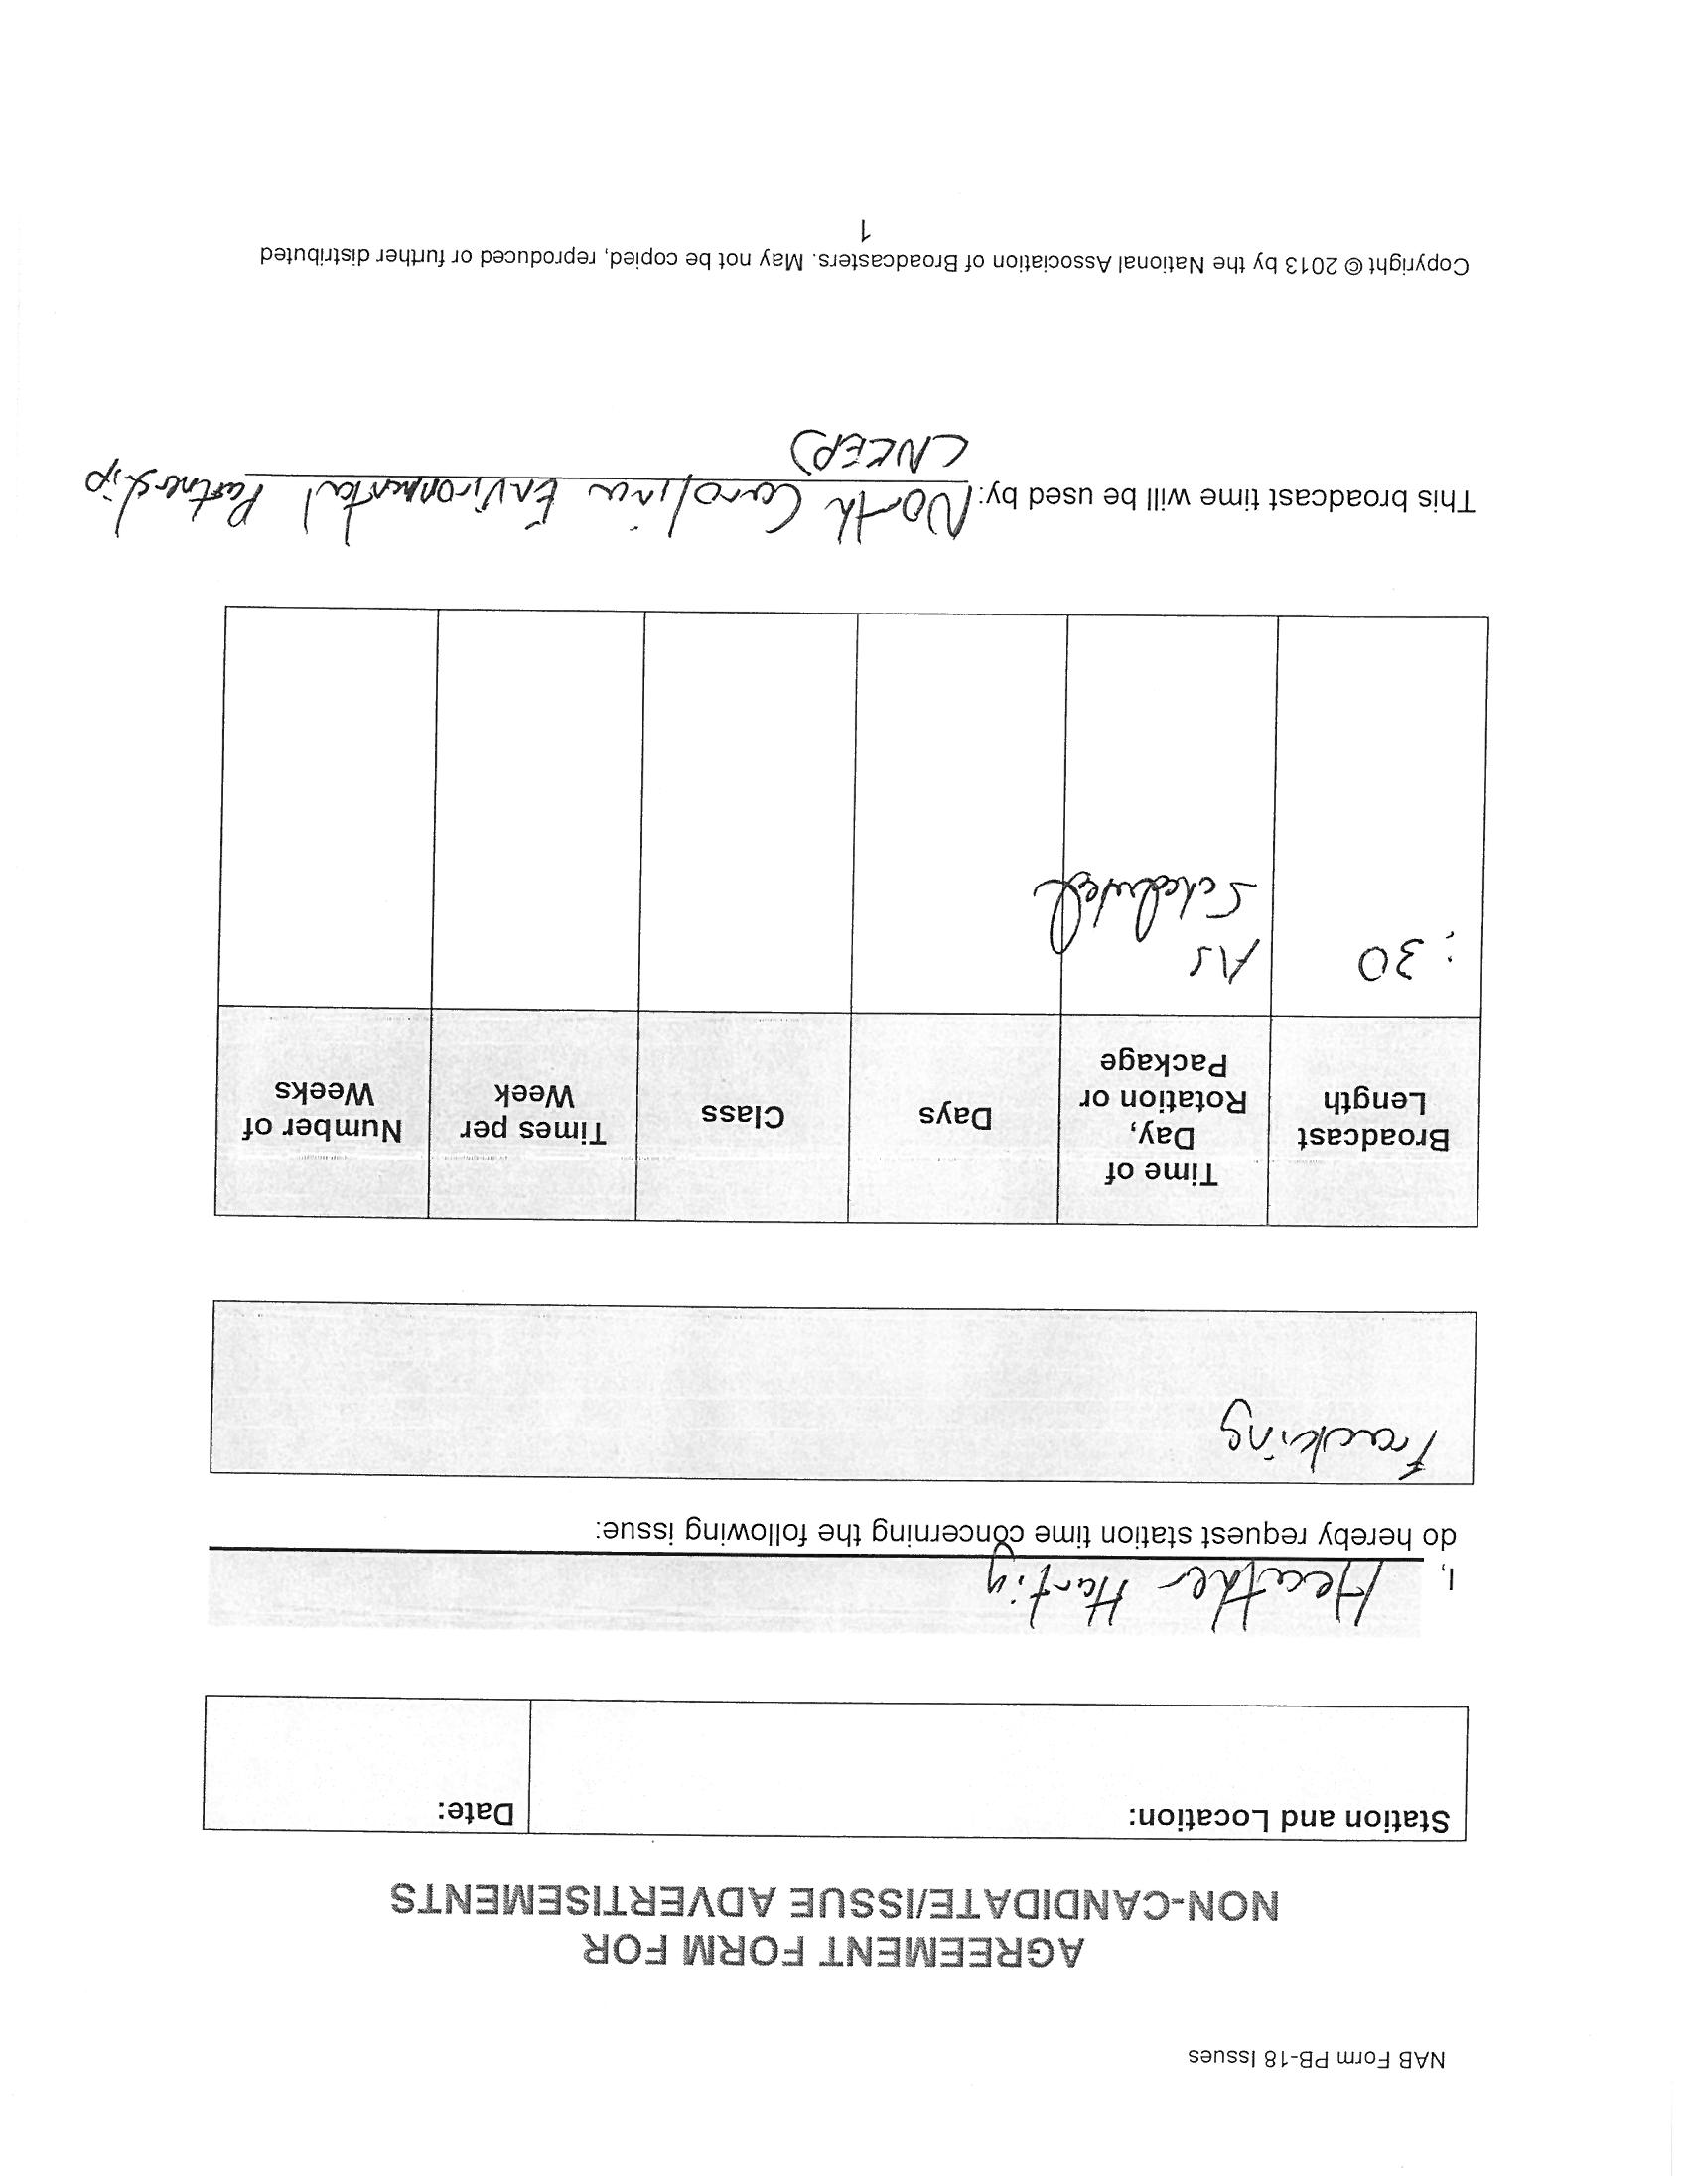 NAB Form PB-18 Issues
AGREEMENT FORM FOR
NON-CANDIDATE/ISSUE ADVERTISEMENTS
Station and Location:
Date:
I, Heather Hartig
do hereby request station time concerning the following issue:
Fracking
Broadcast Length
Time of Day, Rotation or Package
Days
Class
Times per Week
Number of Weeks
:30
As Scheduled
This broadcast time will be used by: North Carolina Environmental Partnership
(NCEP)
Copyright © 2013 by the National Association of Broadcasters. May not be copied, reproduced or further distributed
1